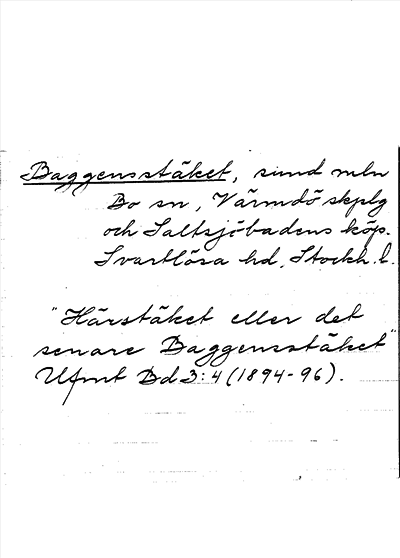 Baggensstäket, sund mln
Bo sn, Värmdö skplg
och Saltsjöbadens köp.
Svartlösa hd, Stockh. l.
"Härstäket eller det
senare Baggensstäket"
Ufmt Bd 3:4 (1894-96).